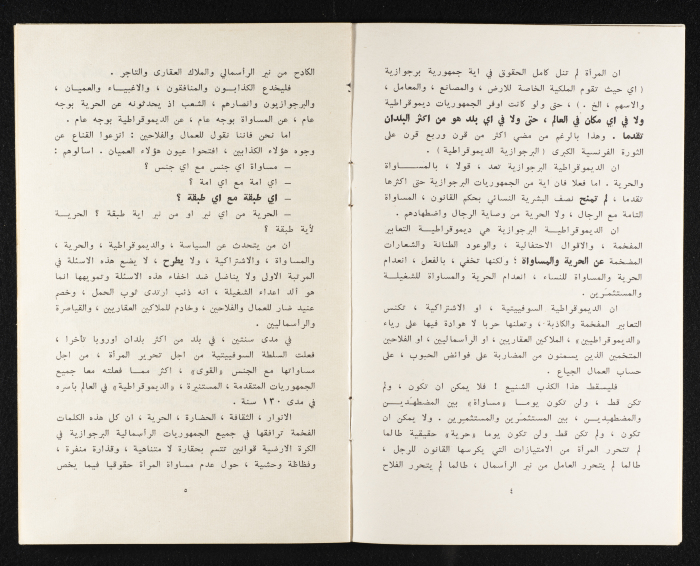 ان المرأة لم تنل كامل الحقوق في اية جمهورية برجوازية
( اي حيث تقوم الملكية الخاصة للارض ، والمصانع ، والمعامل ،
والاسهم ، الخ . ) ، حتى ولو كانت اوفر الجمهوريات ديموقراطية
ولا في اي مكان في العالم ، حتى ولا في اي بلد هو من اكثر البلدان
تقدما . وهذا بالرغم من مضي اكثر من قرن وربع قرن على
الثورة الفرنسية الكبرى ( البرجوازية الديموقراطية ) .
ان الديموقراطية البرجوازية تعد ، قولا ، بالمساواة
والحرية . اما فعلا فان اية من الجمهوريات البرجوازية حتى اكثرها
تقدما ، لم تمنح نصف البشرية النسائي بحكم القانون ، المساواة
التامة مع الرجال ، ولا الحرية من وصاية الرجال واضطهادهم .
ان الديموقراطية البرجوازية هي ديموقراطية التعابير
المفخمة ، والاقوال الاحتفالية ، والوعود الطنانة والشعارات
المضخمة عن الحرية والمساواة ؛ ولكنها تخفي ، بالفعل ، انعدام
الحرية والمساواة للنساء ، انعدام الحرية والمساواة للشغيلة
والمستثمَرين .
ان الديموقراطية السوفييتية ، او الاشتراكية ، تكنس
التعابير المفخمة والكاذبة ، وتعلنها حربا لا هوادة فيها على رياء
«الديموقراطيين» ، الملاكين العقاريين ، او الرأسماليين ، او الفلاحين
المتخمين الذين يسمنون من المضاربة على فوائض الحبوب ، على
حساب العمال الجياع .
فليسقط هذا الكذب الشنيع ! فلا يمكن ان تكون ، ولم
تكن قط ، ولن تكون يوما «مساواة» بين المضطهَدين
والمضطهِدين ، بين المستثمَرين والمستثمِرين . ولا يمكن ان
تكون ، ولم تكن قط ولن تكون يوما «حرية» حقيقية طالما
لم تتحرر المرأة من الامتيازات التي يكرسها القانون للرجل ،
طالما لم يتحرر العامل من نير الرأسمال ، طالما لم يتحرر الفلاح
٤
الكادح من نير الرأسمالي والملاك العقاري والتاجر .
فليخدع الكذابون والمنافقون ، والاغبياء والعميان ،
والبرجوازيون وانصارهم ، الشعب اذ يحدثونه عن الحرية بوجه
عام ، عن المساواة بوجه عام ، عن الديموقراطية بوجه عام .
اما نحن فاننا نقول للعمال والفلاحين : انزعوا القناع عن
وجوه هؤلاء الكذابين ، افتحوا عيون هؤلاء العميان . اسألوهم :
– مساواة اي جنس مع اي جنس ؟
– اي امة مع اي امة ؟
– اي طبقة مع اي طبقة ؟
– الحرية من اي نير او من نير اية طبقة ؟ الحرية
لأية طبقة ؟
ان من يتحدث عن السياسة ، والديموقراطية ، والحرية ،
والمساواة ، والاشتراكية ، ولا يطرح ، لا يضع هذه الاسئلة في
المرتبة الاولى ولا يناضل ضد اخفاء هذه الاسئلة وتمويهها انما
هو ألد اعداء الشغيلة ، انه ذئب ارتدى ثوب الحمل ، وخصم
عنيد ضار للعمال والفلاحين ، وخادم للملاكين العقاريين ، والقياصرة
والرأسماليين .
في مدى سنتين ، في بلد من اكثر بلدان اوروبا تأخرا ،
فعلت السلطة السوفييتية من اجل تحرير المرأة ، من اجل
مساواتها مع الجنس «القوي» ، اكثر مما فعلته معا جميع
الجمهوريات المتقدمة ، المستنيرة ، «الديموقراطية» في العالم بأسره
في مدى ١٣٠ سنة .
الانوار ، الثقافة ، الحضارة ، الحرية ، ان كل هذه الكلمات
الفخمة ترافقها في جميع الجمهوريات الرأسمالية البرجوازية في
الكرة الارضية قوانين تتسم بحقارة لا متناهية ، وقذارة منفرة ،
وفظاظة وحشية ، حول عدم مساواة المرأة حقوقيا فيما يخص
٥